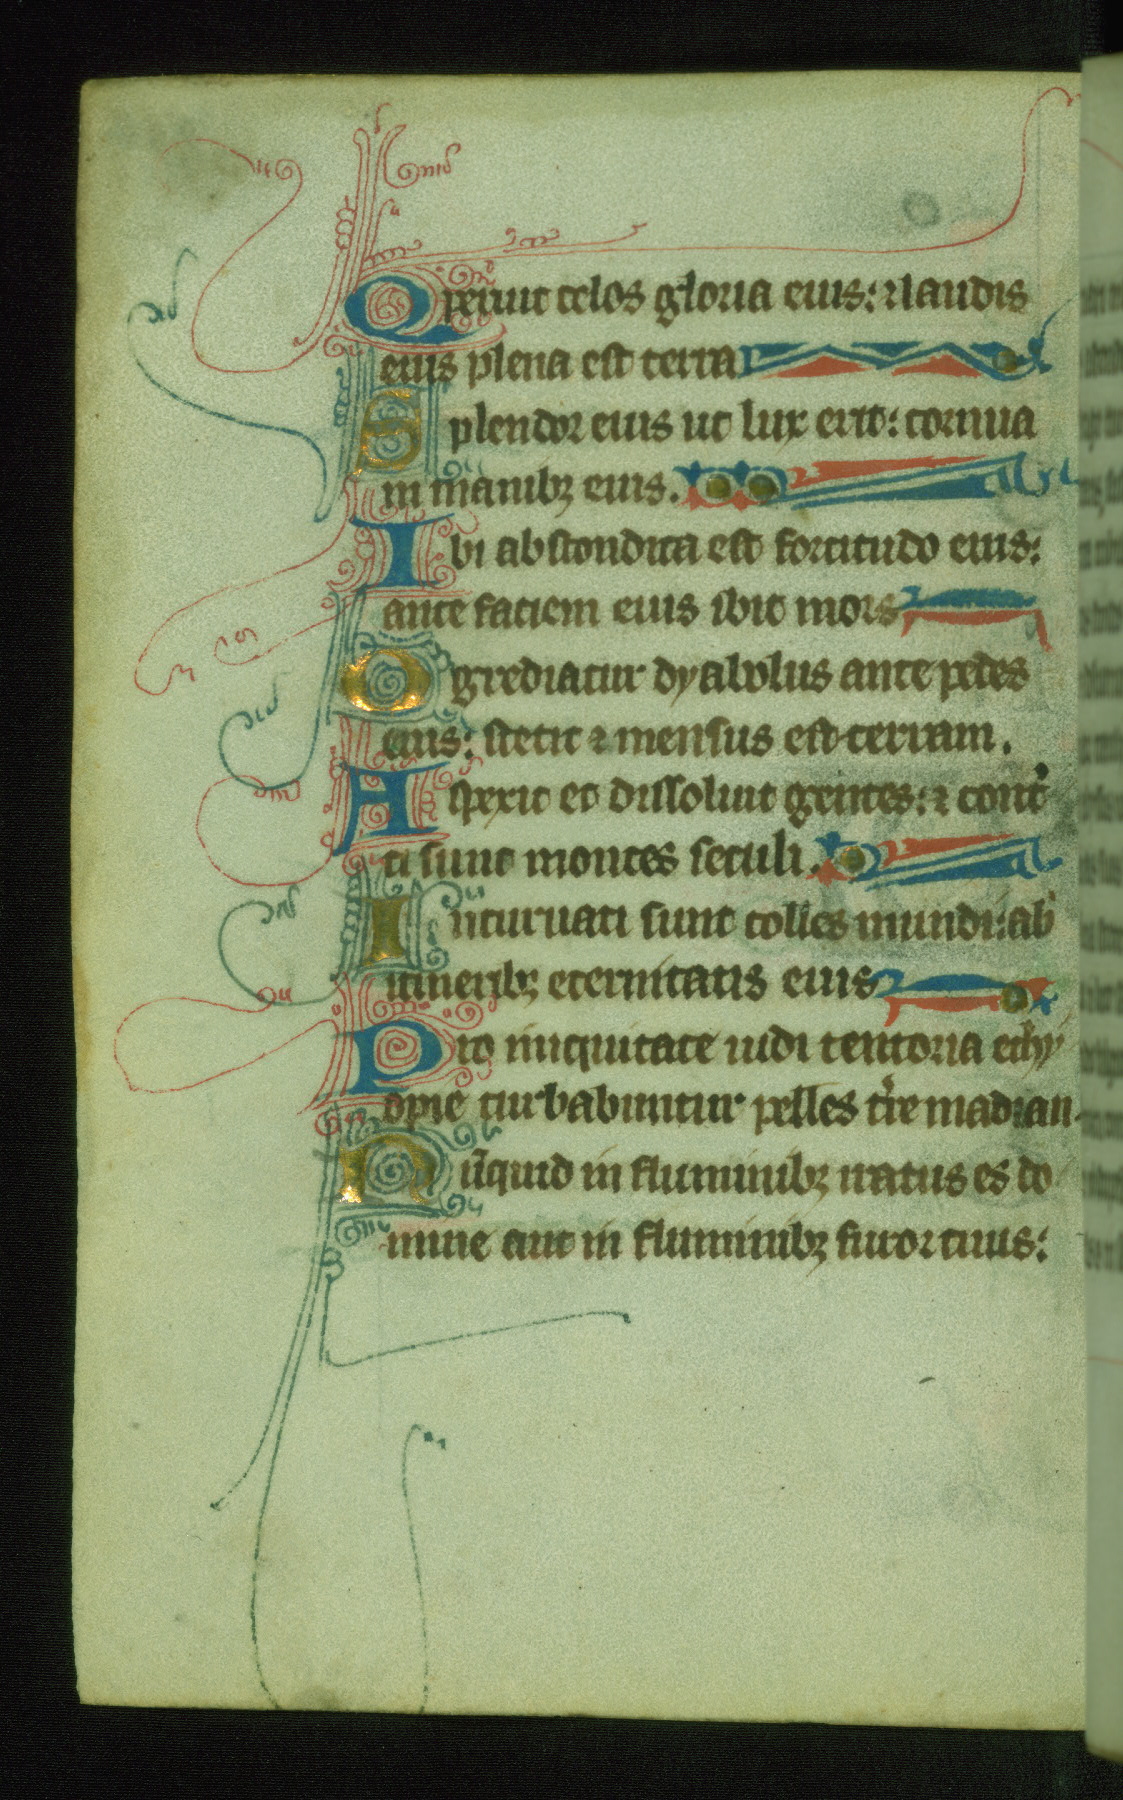 Operuit celos gloria eius: ⁊ laudis
eius plena est terra
Splendor eius ut lux erit: cornua
in manibꝫ eius.
Ibi abscondita est fortitudo eius:
ante faciem eius ibit mors
Egrediatur dyabolus ante pedes
eius: stetit ⁊ mensus est terram.
Aspexit et dissoluit gentes: ⁊ cont᷑
ti sunt montes seculi.
Incuruati sunt colles mundi: ab
itineribꝫ eternitatis eius
Pro iniquitate uidi tentoria ethy
opie turbabuntur pelles t̄re madian.
Nūquid in fluminibꝫ iratus es do
mine aut in fluminibꝫ furor tuus: